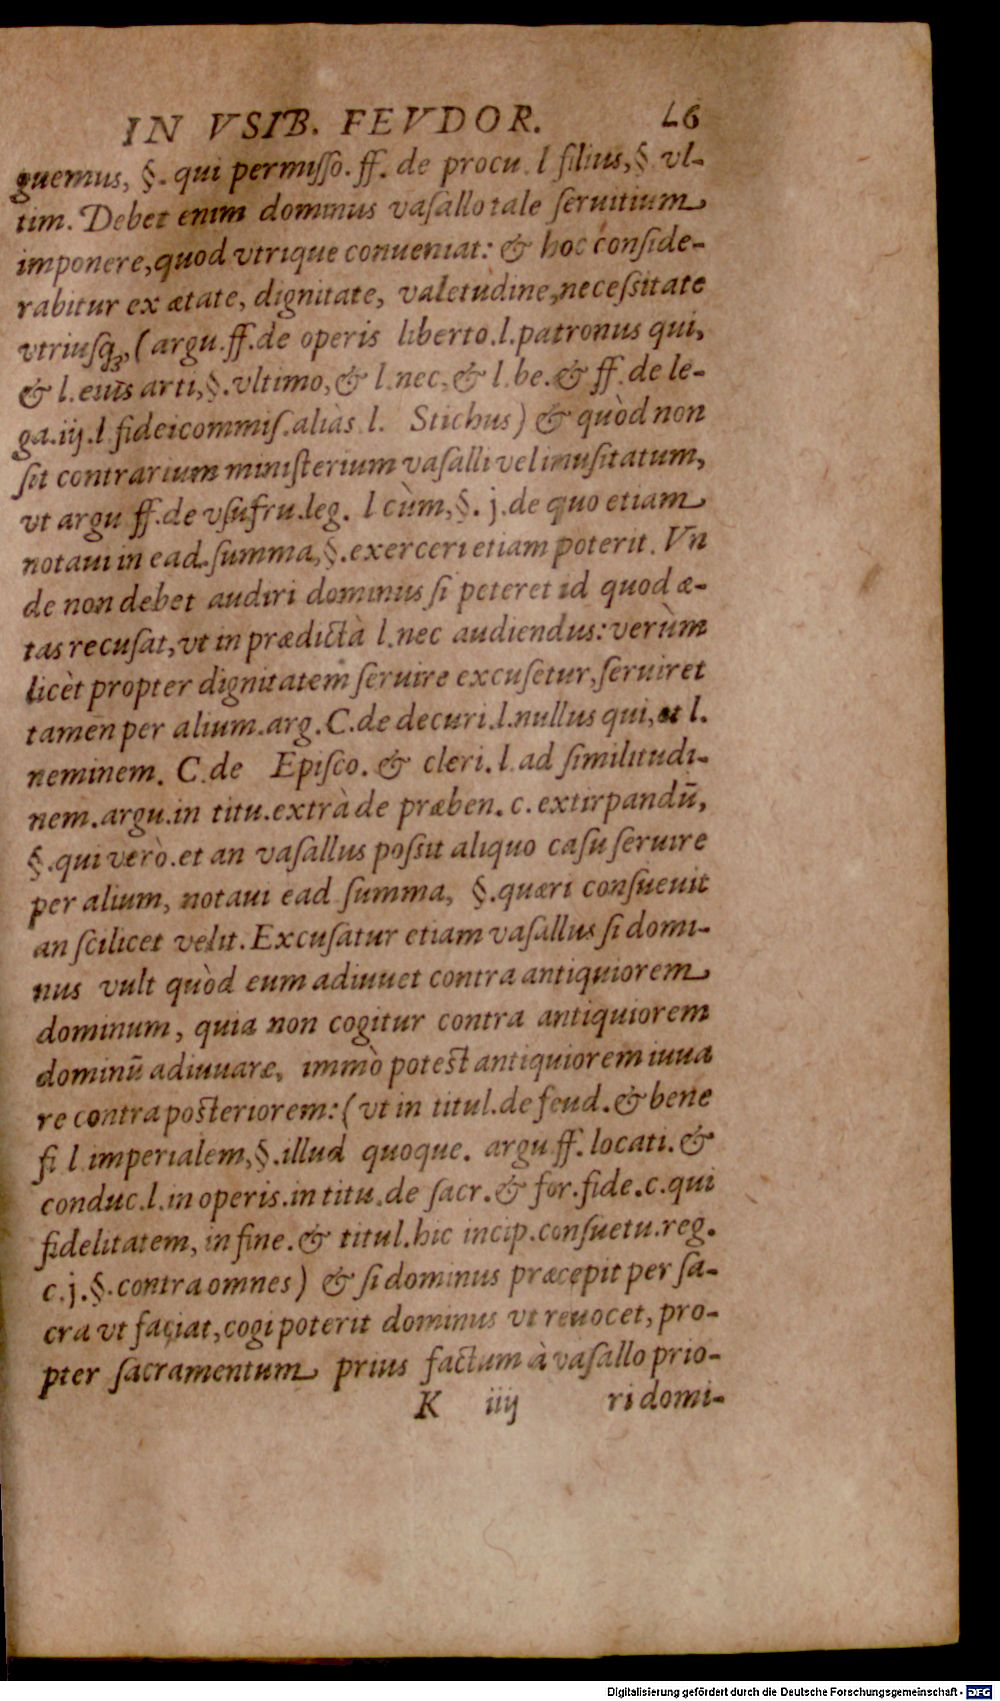 IN VSIB. FEVDOR. 46
guemus, §. qui permisso. ff. de procu. l filius, §. vl-
tim. Debet enim dominus vasallo tale seruitium
imponere, quod vtrique conueniat: & hoc conside-
rabitur ex ætate, dignitate, valetùdine, necessitate
vtriusq́ꝫ, (argu. ff. de operis liberto. l. patronus qui,
& l. eius arti, §. vltimo, & l. nec, & l. be. & ff. de le-
ga. iij. l fideicommis. aliàs l. Stichus) & quòd non
sit contrarium ministerium vasalli vel inusitatum,
vt argu ff. de vsufru. leg. l cùm, §. j. de quo etiam
notaui in ead. summa, §. exerceri etiam poterit. Vn
de non debet audiri dominus si peteret id quod æ-
tas recusat, vt in prædictà l. nec audiendus: verùm
licèt propter dignitatem seruire excusetur, seruiret
tamen per alium. arg. C. de decuri. l. nullus qui, et l.
neminem. C. de Episco. & cleri. l. ad similitudi-
nem. argu. in titu. extrà de præben. c. extirpandū,
§. qui verò. et an vasallus possit aliquo casu seruire
per alium, notaui ead summa, §. quæri consueuit
an scilicet velit. Excusatur etiam vasallus si domi-
nus vult quòd eum adiuuet contra antiquiorem
dominum, quia non cogitur contra antiquiorem
dominū adiuuare, immò potest antiquiorem iuua
re contra posteriorem: (vt in titul. de feud. & bene
fi l. imperialem, §. illud quoque. argu ff. locati. &
conduc. l. in operis. in titu. de sacr. & for. fide. c. qui
fidelitatem, in fine. & titul. hic incip. consuetu. reg.
c. j. §. contra omnes) & si dominus præcepit per sa-
cra vt faciat, cogi poterit dominus vt reuocet, pro-
pter sacramentum prius factum à vasallo prio-
K iiij ri domi-
Digitalisierung gefördert durch die Deutsche Forschungsgemeinschaft - DFG